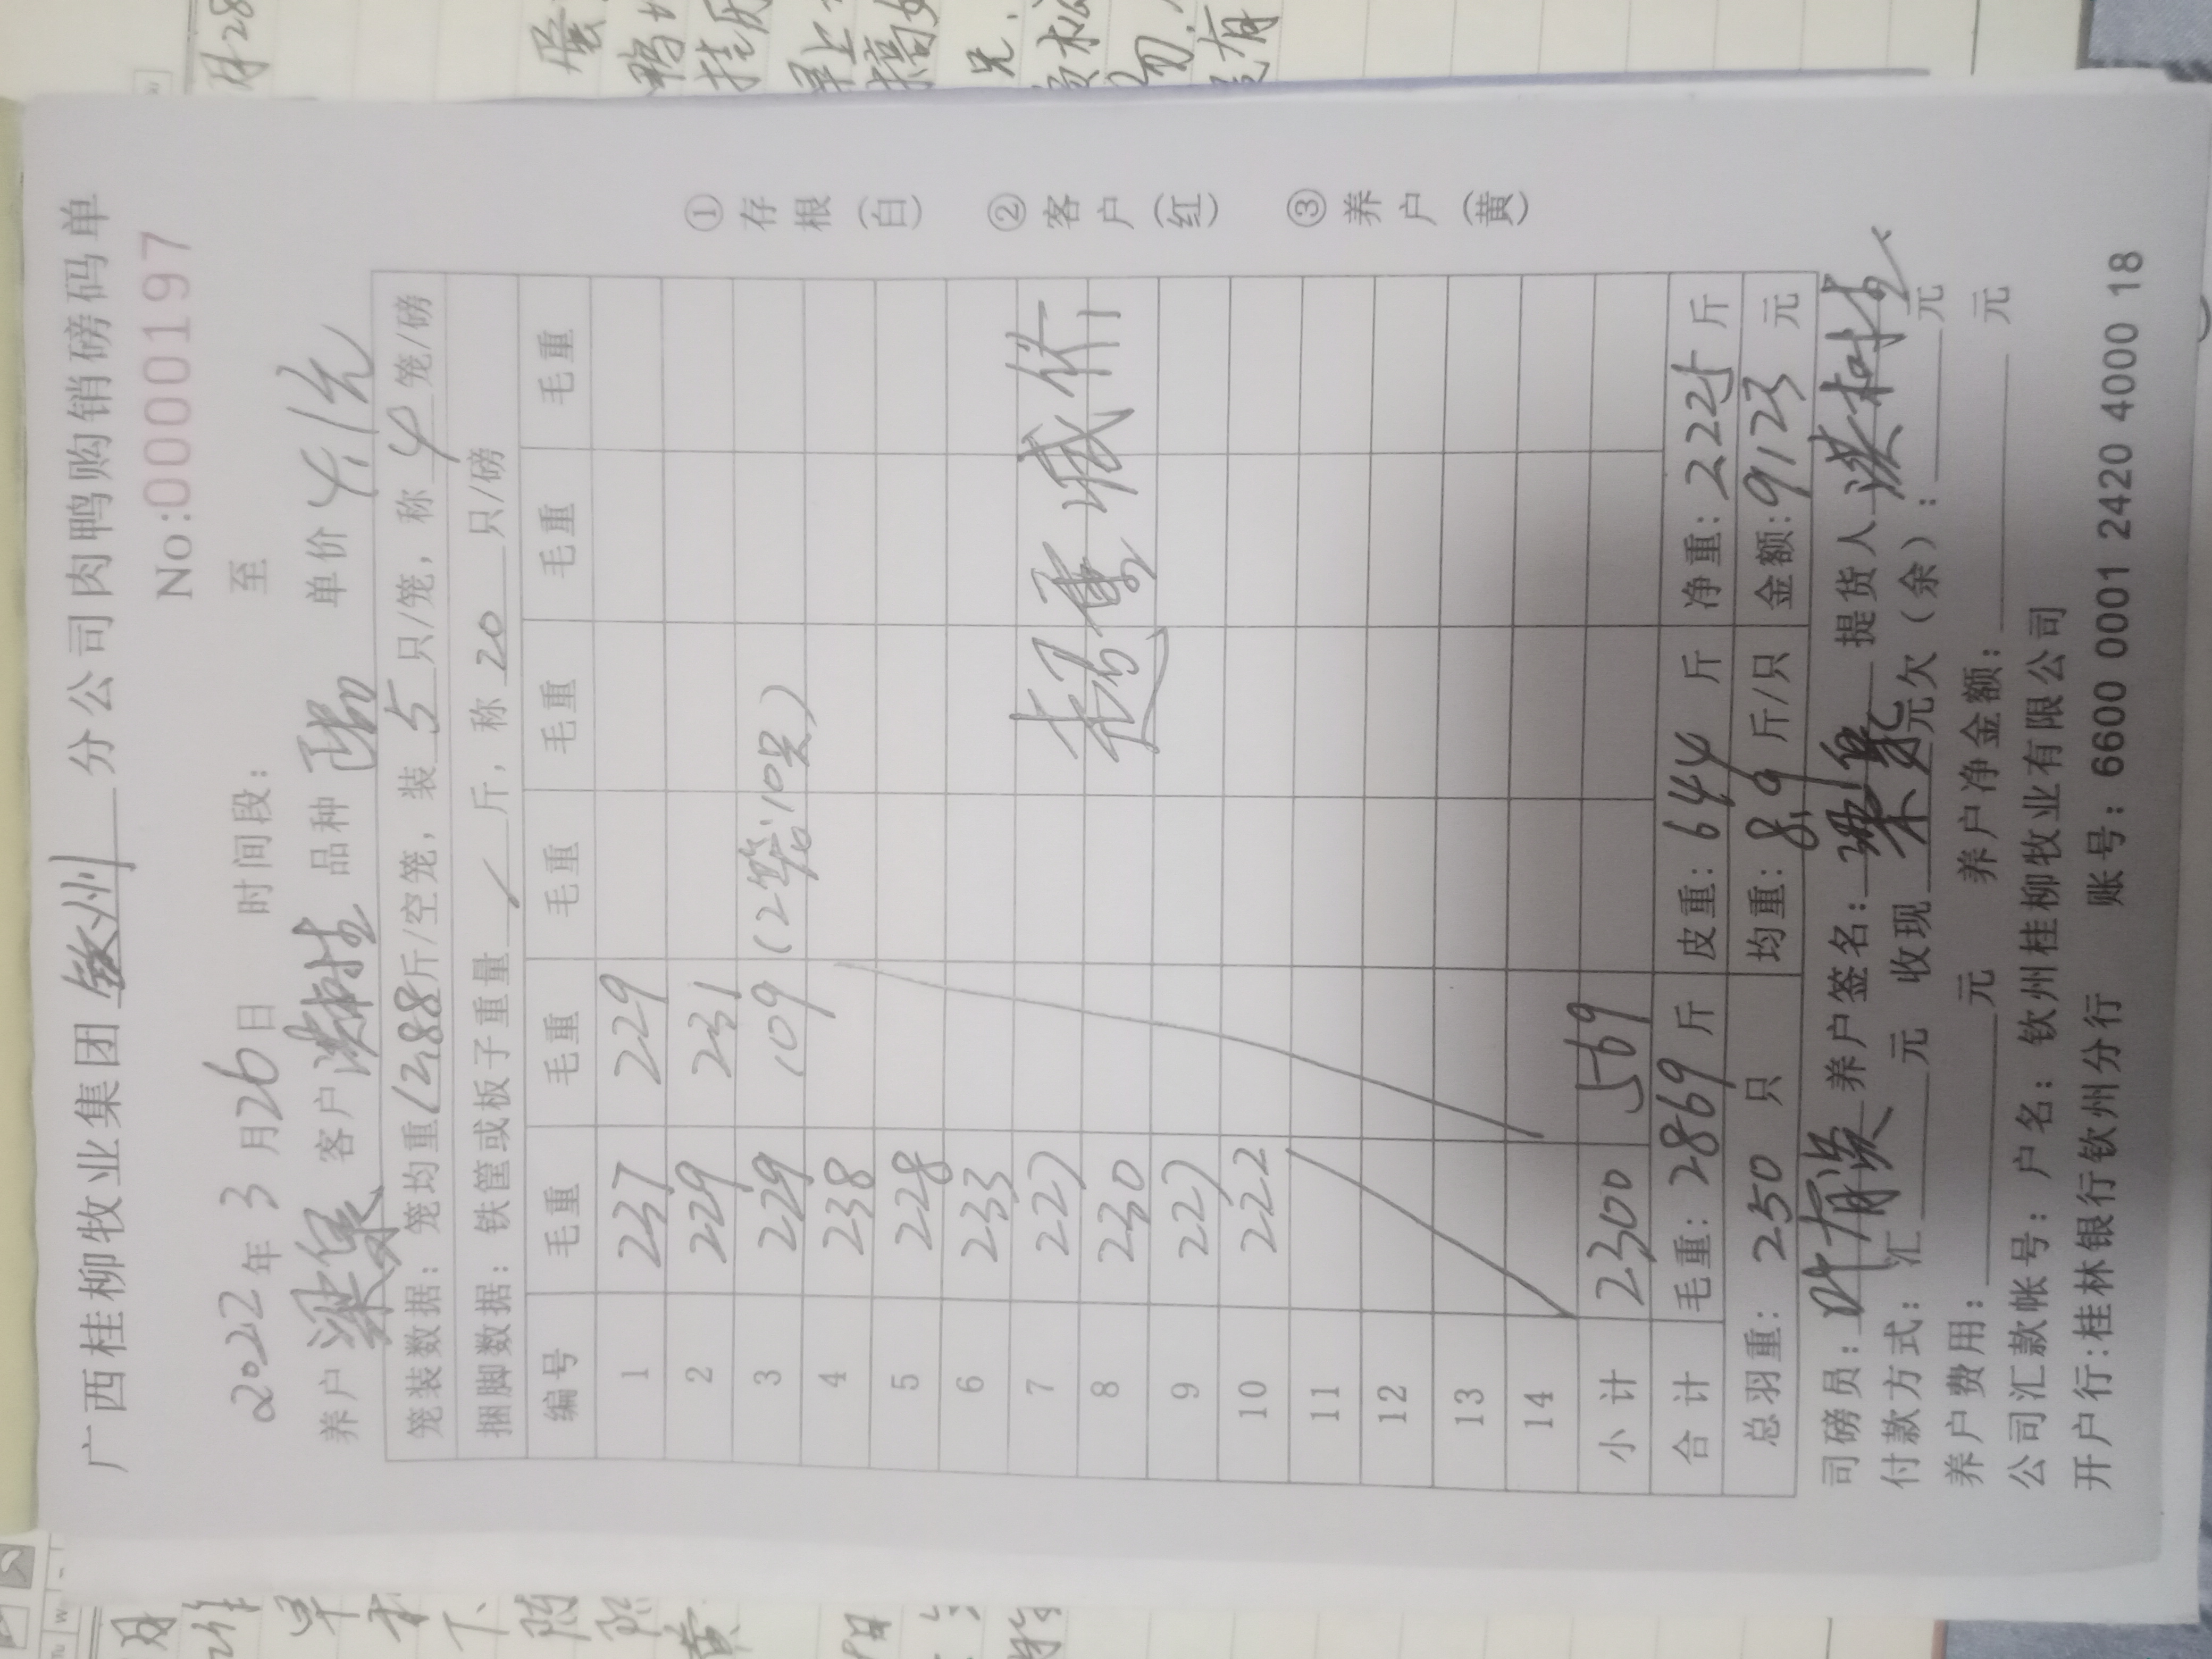 广西桂柳牧业集团 钦州 分公司肉鸭购销磅码单
No:0000197
2022年3月26日 时间段: 至
养户 梁 客户 洪树生 品种 单价 4.1元
笼装数据: 笼均重12.88斤/空笼, 装5只/笼, 称4笼/磅
捆脚数据: 铁筐或板子重量 / 斤, 称20只/磅
编号 毛重 毛重 毛重 毛重 毛重 毛重
1 237 229
2 229 231
3 229 109 (2笼10只)
4 238
5 228
6 233
7 227 超重减价
8 230
9 227
10 222
11
12
13
14
小计 2300 569
合计 毛重: 2869斤 皮重: 644斤 净重: 2225斤
总羽重: 250只 均重: 8.9斤/只 金额: 9123元
司磅员: 养户签名: 梁 提货人 洪树生
付款方式: 汇 元 收现 元欠(余): 元
养户费用: 元 养户净金额: 元
公司汇款帐号: 户名: 钦州桂柳牧业有限公司
开户行:桂林银行钦州分行 账号: 6600 0001 2420 4000 18
①存根(白) ②客户(红) ③养户(黄)